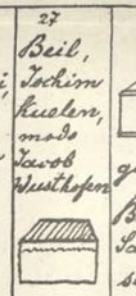 27
Beil,
Jochim
Kuelen,
modo
Jacob
Wusthofen